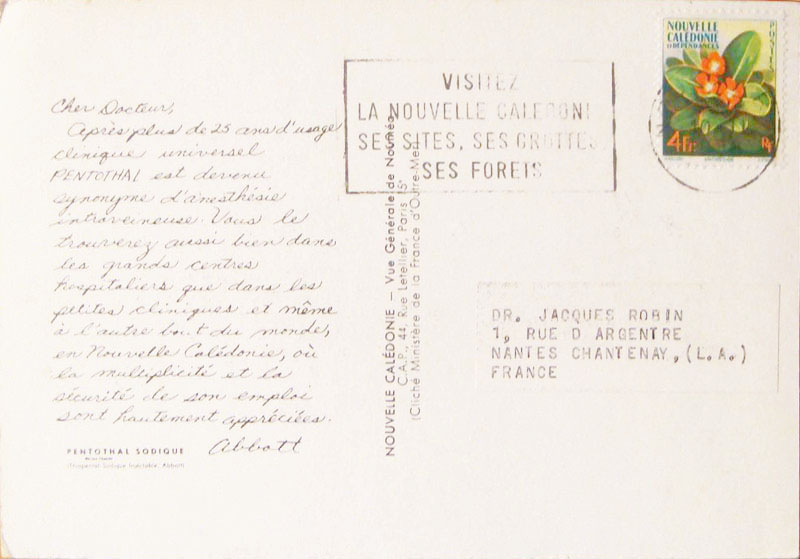 Cher Docteur,
Après plus de 25 ans d'usage
clinique universel
PENTOTHAL est devenu
synonyme d'anesthésie
intraveineuse. Vous le
trouverez aussi bien dans
les grands centres
hospitaliers que dans les
petites cliniques et même
à l'autre bout du monde,
en Nouvelle Calédonie, où
la multiplicité et la
sécurité de son emploi
sont hautement appréciées.
Abbott
PENTOTHAL SODIQUE
(Thiopental Sodique Injectable, Abbott)
NOUVELLE CALÉDONIE — Vue Générale de Nouméa
C.A.P., 44, Rue Letellier, Paris 15e
(Cliché Ministère de la France d'Outre-Mer)
VISITEZ
LA NOUVELLE CALEDONI
SES SITES, SES GROTTES
SES FORETS
NOUVELLE
CALÉDONIE
ET DÉPENDANCES
POSTES
4Fr.
RF
DR. JACQUES ROBIN
1, RUE D ARGENTRE
NANTES CHANTENAY, (L.A.)
FRANCE